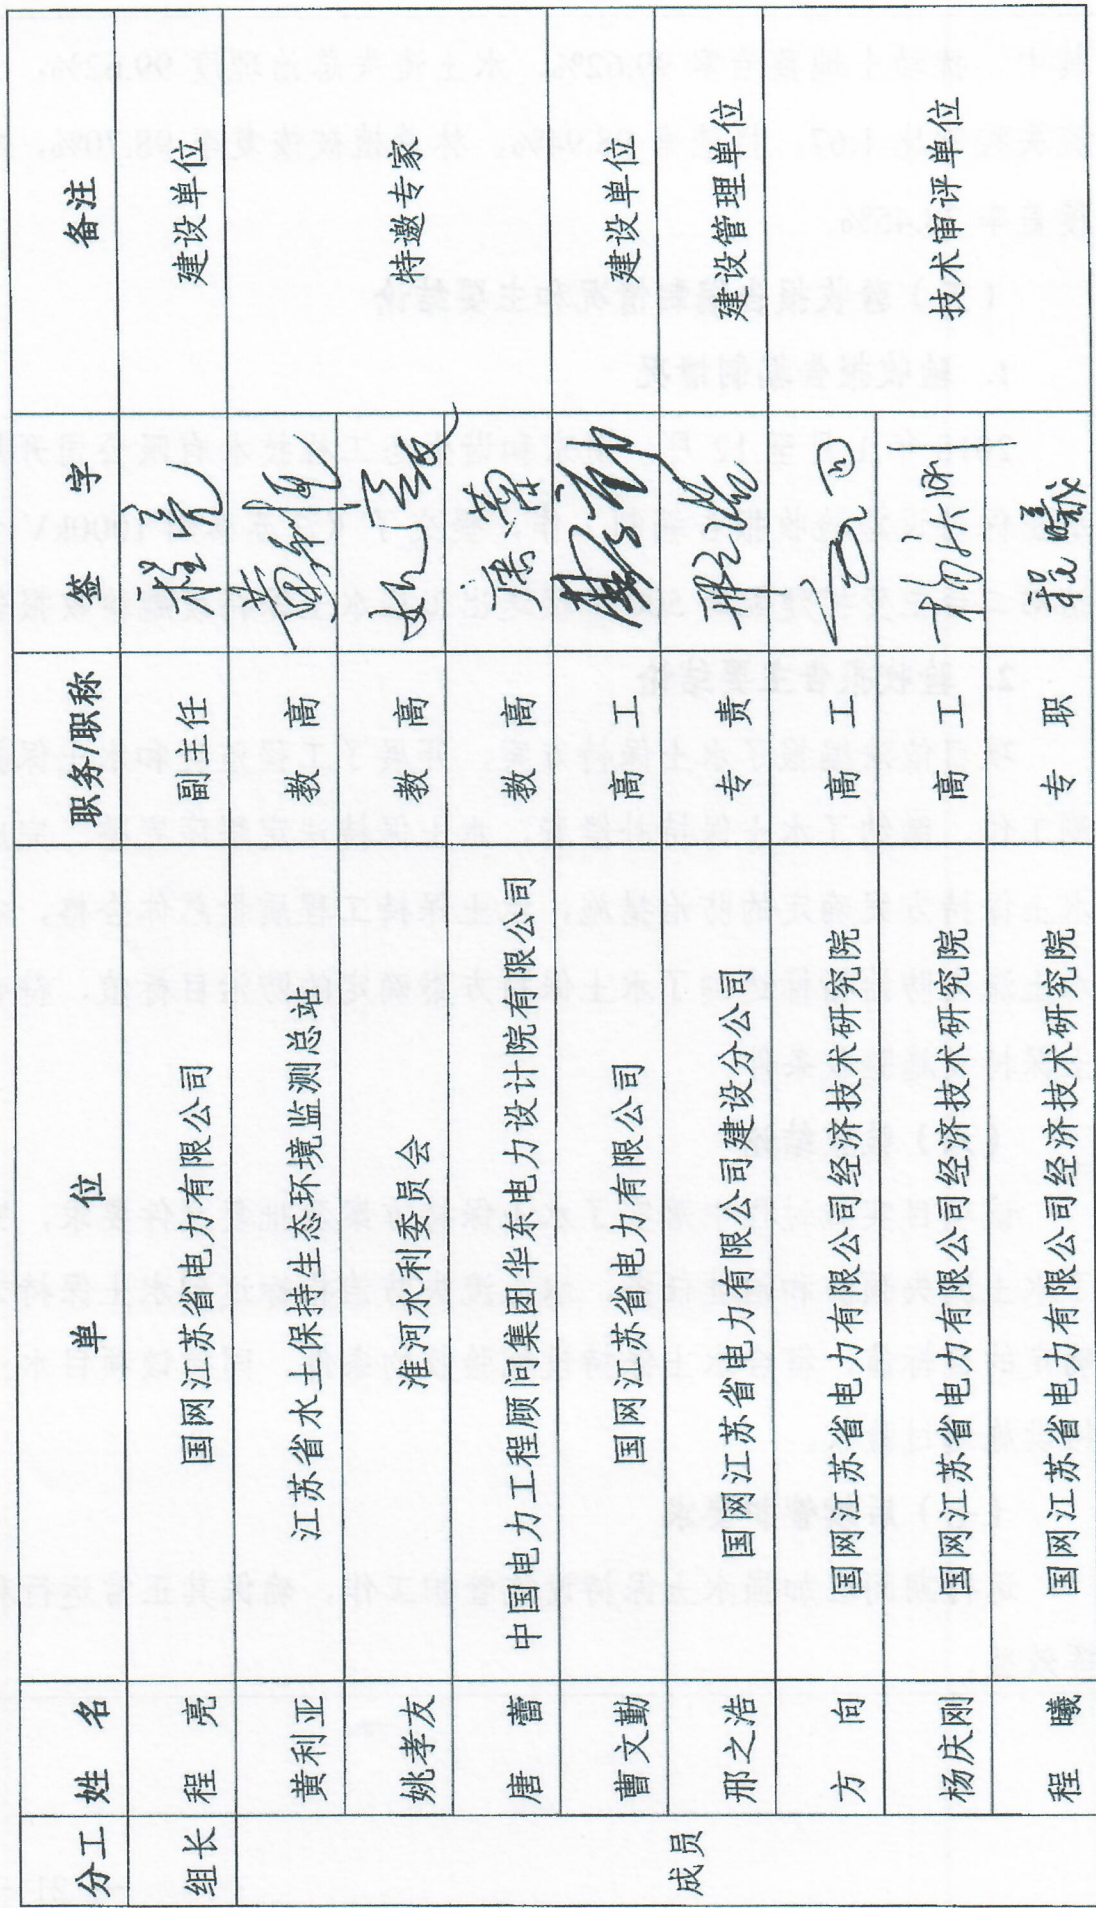 分工 姓 名 单 位 职务/职称 签 字 备注
组长 程 亮 国网江苏省电力有限公司 副主任 程亮 建设单位
成员 黄利亚 江苏省水土保持生态环境监测总站 教 高 黄利亚 特邀专家
姚孝友 淮河水利委员会 教 高
唐 蕾 中国电力工程顾问集团华东电力设计院有限公司 教 高 唐蕾
曹文勤 国网江苏省电力有限公司 高 工 曹文勤 建设单位
邢之浩 国网江苏省电力有限公司建设分公司 专 责 邢之浩 建设管理单位
方 向 国网江苏省电力有限公司经济技术研究院 高 工 方向 技术审评单位
杨庆刚 国网江苏省电力有限公司经济技术研究院 高 工 杨庆刚
程 曦 国网江苏省电力有限公司经济技术研究院 专 职 程曦